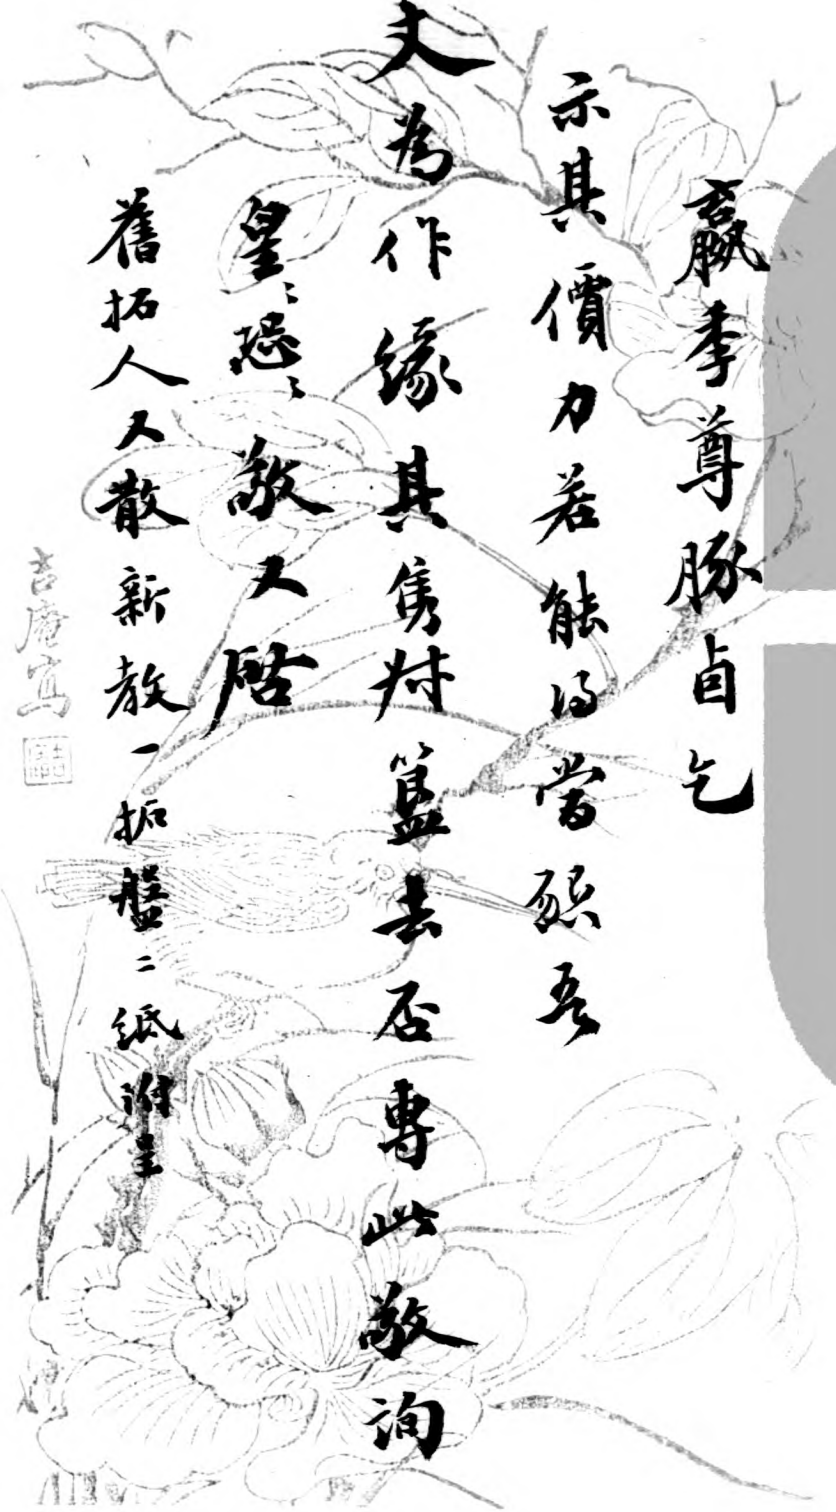 嬴季尊豚卣乞
示其價力若能得當認吾
丈為作緣其雋尌簋去否專此敬詢
皇〻恐〻敬又啓
舊拓人又散新敎一拓盤二紙附呈
吉庵寫